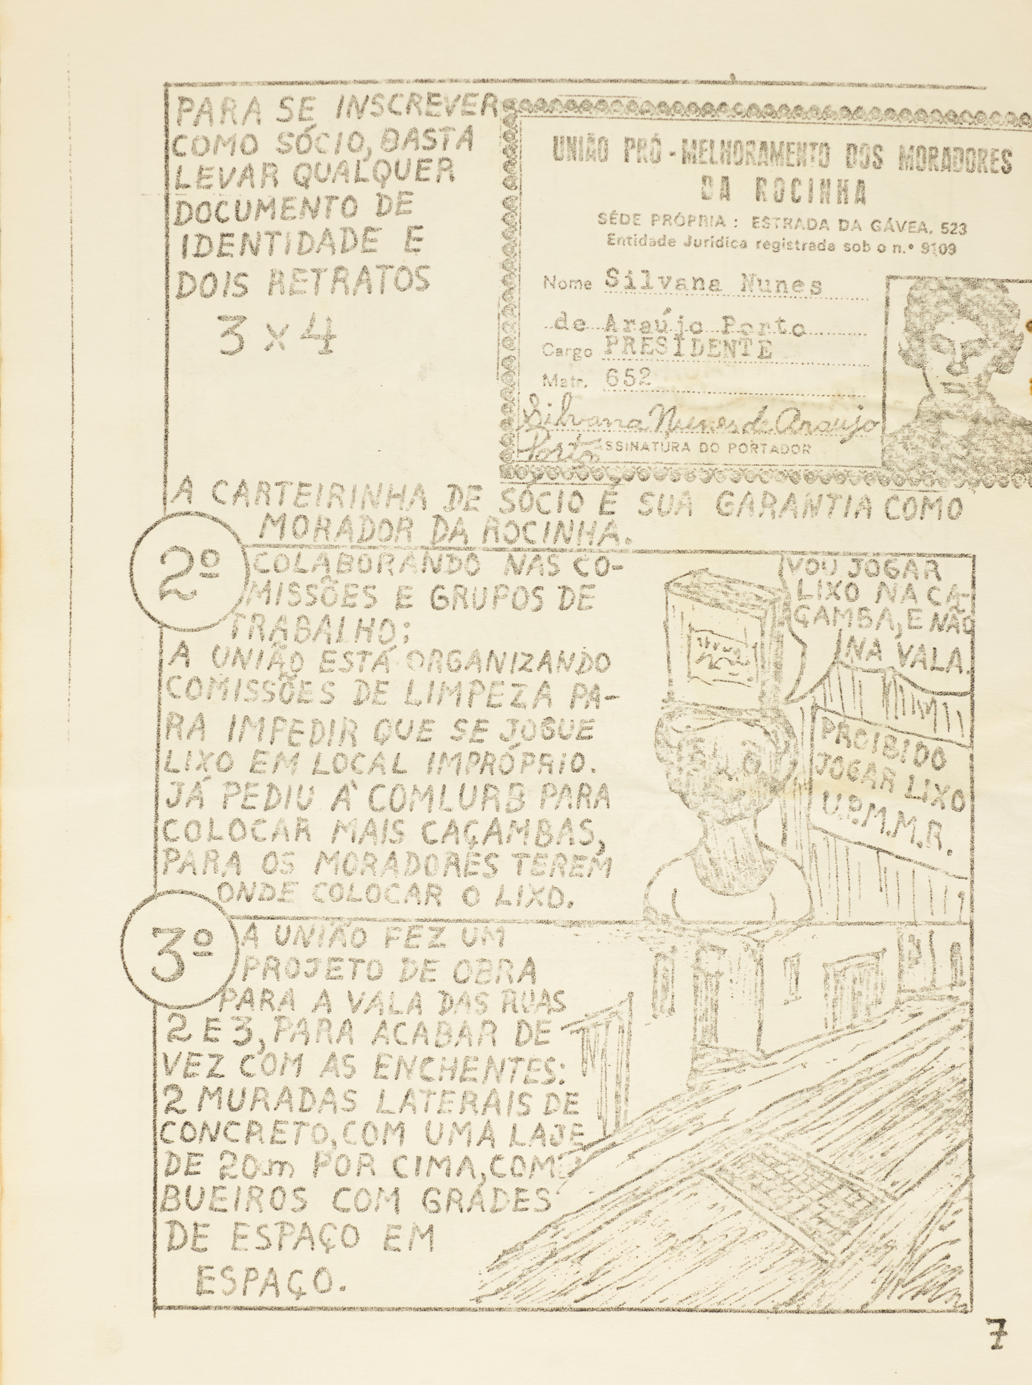 PARA SE INSCREVER
COMO SÓCIO, BASTA
LEVAR QUALQUER
DOCUMENTO DE
IDENTIDADE E
DOIS RETRATOS
3 x 4
UNIÃO PRÓ-MELHORAMENTO DOS MORADORES
DA ROCINHA
SÉDE PRÓPRIA: ESTRADA DA GÁVEA, 523
Entidade Jurídica registrada sob o n.º 9109
Nome Silvana Nunes
de Araújo Porto
Cargo PRESIDENTE
Matr. 652
Silvana Nunes de Araujo
Porto
SSINATURA DO PORTADOR
A CARTEIRINHA DE SÓCIO É SUA GARANTIA COMO
MORADOR DA ROCINHA.
2º
COLABORANDO NAS CO-
MISSÕES E GRUPOS DE
TRABALHO:
A UNIÃO ESTÁ ORGANIZANDO
COMISSÕES DE LIMPEZA PA-
RA IMPEDIR QUE SE JOGUE
LIXO EM LOCAL IMPRÓPRIO.
JÁ PEDIU À COMLURB PARA
COLOCAR MAIS CAÇAMBAS,
PARA OS MORADORES TEREM
ONDE COLOCAR O LIXO.
VOU JOGAR
LIXO NA CA-
GAMBA, E NÃO
NA VALA.
PROIBIDO
JOGAR LIXO
U.P.M.M.R.
3º
A UNIÃO FEZ UM
PROJETO DE OBRA
PARA A VALA DAS RUAS
2 E 3, PARA ACABAR DE
VEZ COM AS ENCHENTES:
2 MURADAS LATERAIS DE
CONCRETO, COM UMA LAJE
DE 20m POR CIMA, COM
BUEIROS COM GRADES
DE ESPAÇO EM
ESPAÇO.
7